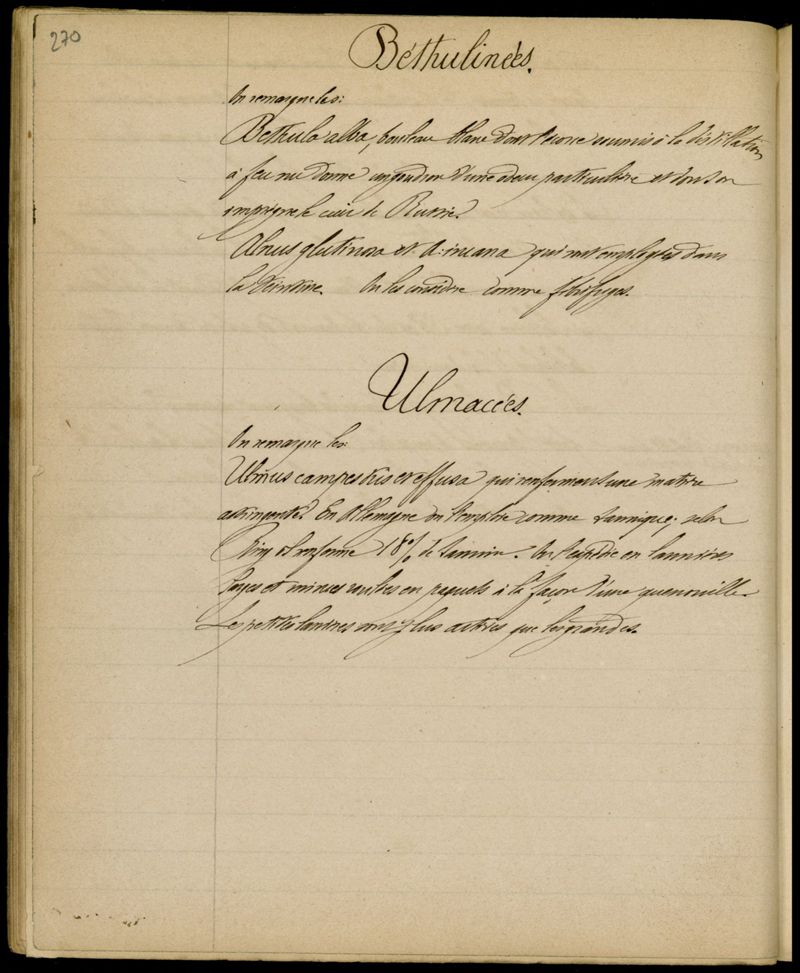 270
Béthulinées.
On remarque les:
Bethula alba, bouleau blanc dont l'écorce soumis à la distillation
à feu nu donne un goudron d'une odeur particulière et dont on
imprègne le cuir de Russie.
Alnus glutinosa et A. incana qui sont employés dans
la teinture. On les considère comme fébrifuges.
Ulmacées.
On remarque les:
Ulmus campestris et effusa qui renferment une matière
astringente. En Allemagne on l'emploie comme tannique; selon
il renferme 18% de tannin. On l'expédie en lannières
larges et minces roulées en paquets à la façon d'une quenouille.
Les petites lanières sont plus actives que les grandes.